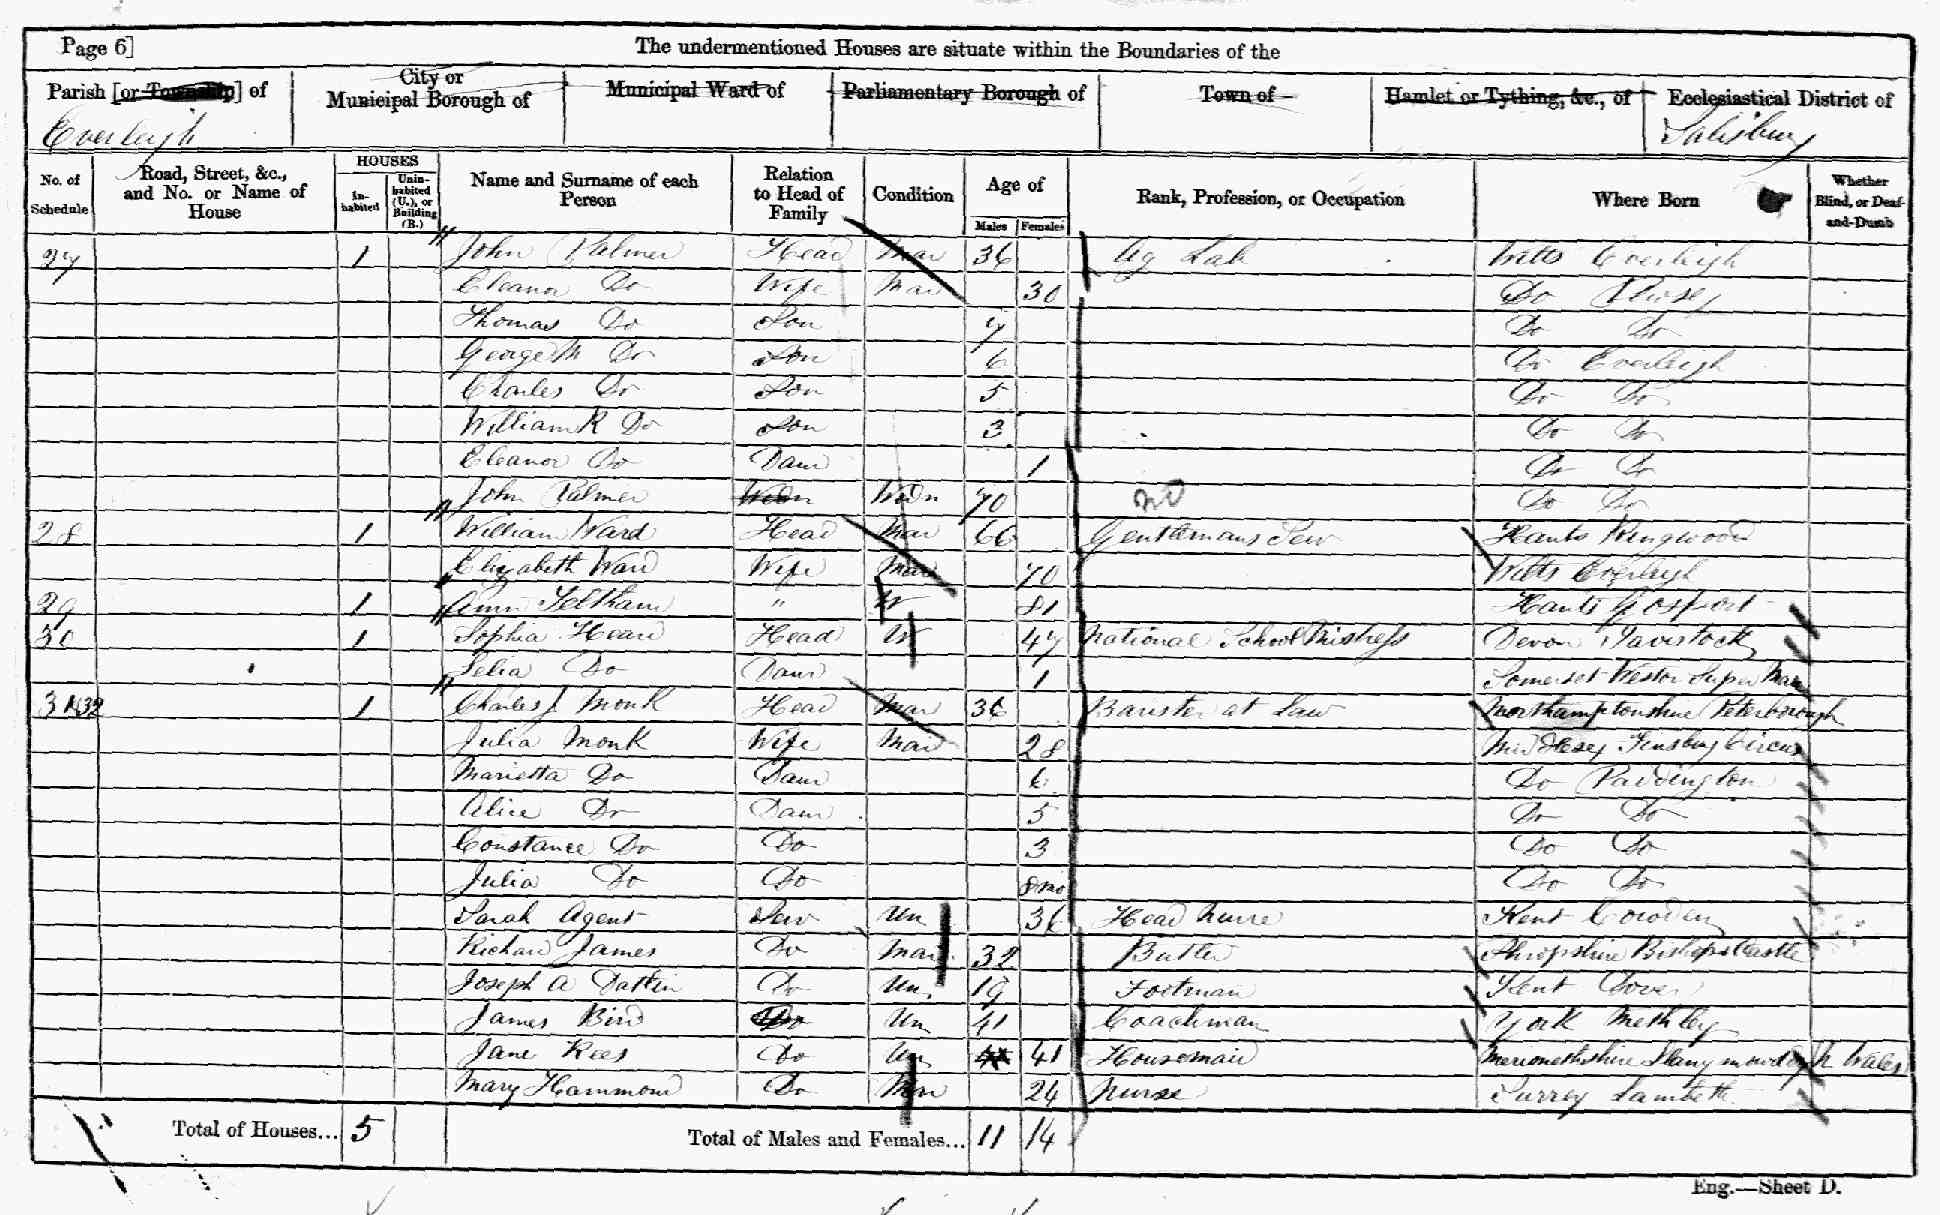 Page 6]
The undermentioned Houses are situate within the Boundaries of the
Parish [or Township] of
City or Municipal Borough of
Municipal Ward of
Parliamentary Borough of
Town of
Hamlet or Tything, &c., of
Ecclesiastical District of
Everleigh
Salisbury
No. of Schedule
Road, Street, &c., and No. or Name of House
HOUSES
Inhabited
Uninhabited (U.), or Building (B.)
Name and Surname of each Person
Relation to Head of Family
Condition
Age of
Males
Females
Rank, Profession, or Occupation
Where Born
Whether Blind, or Deaf-and-Dumb
27 1 John Palmer Head Mar 36 Ag Lab Wilts Everleigh
Eleanor Do Wife Mar 30 Do Pewsey
Thomas Do Son 7 Do Do
George M Do Son 6 Do Everleigh
Charles Do Son 5 Do Do
William R Do Son 3 Do Do
Eleanor Do Daur 1 Do Do
John Palmer Widr 70 Do Do
28 1 William Ward Head Mar 66 Gentlemans Serv Hants Ringwood
Elizabeth Ward Wife Mar 70 Wilts Everleigh
29 1 Ann Feltham " W 81 Hants Gosport
30 1 Sophia Heard Head W 47 National School Mistress Devon Tavistock
Selia Do Daur 1 Somerset Weston Super Mare
31&32 1 Charles J Monk Head Mar 36 Barister at Law Northamptonshire Peterborough
Julia Monk Wife Mar 28 Middlesex Finsbury Circus
Marietta Do Daur 6 Do Paddington
Alice Do Daur 5 Do Do
Constance Do Do 3 Do Do
Julia Do Do 8mo Do Do
Sarah Agent Serv Un 36 Head Nurse Kent Cowden
Richard James Do Mar 32 Butler Shropshire Bishops Castle
Joseph A Do Un 19 Footman Kent Dover
James Bird Do Un 41 Coachman York Methley
Jane Rees Do Un 41 Housemaid Merionethshire N Wales
Mary Hammond Do 24 Nurse Surrey Lambeth
Total of Houses... 5
Total of Males and Females... 11 14
Eng.—Sheet D.